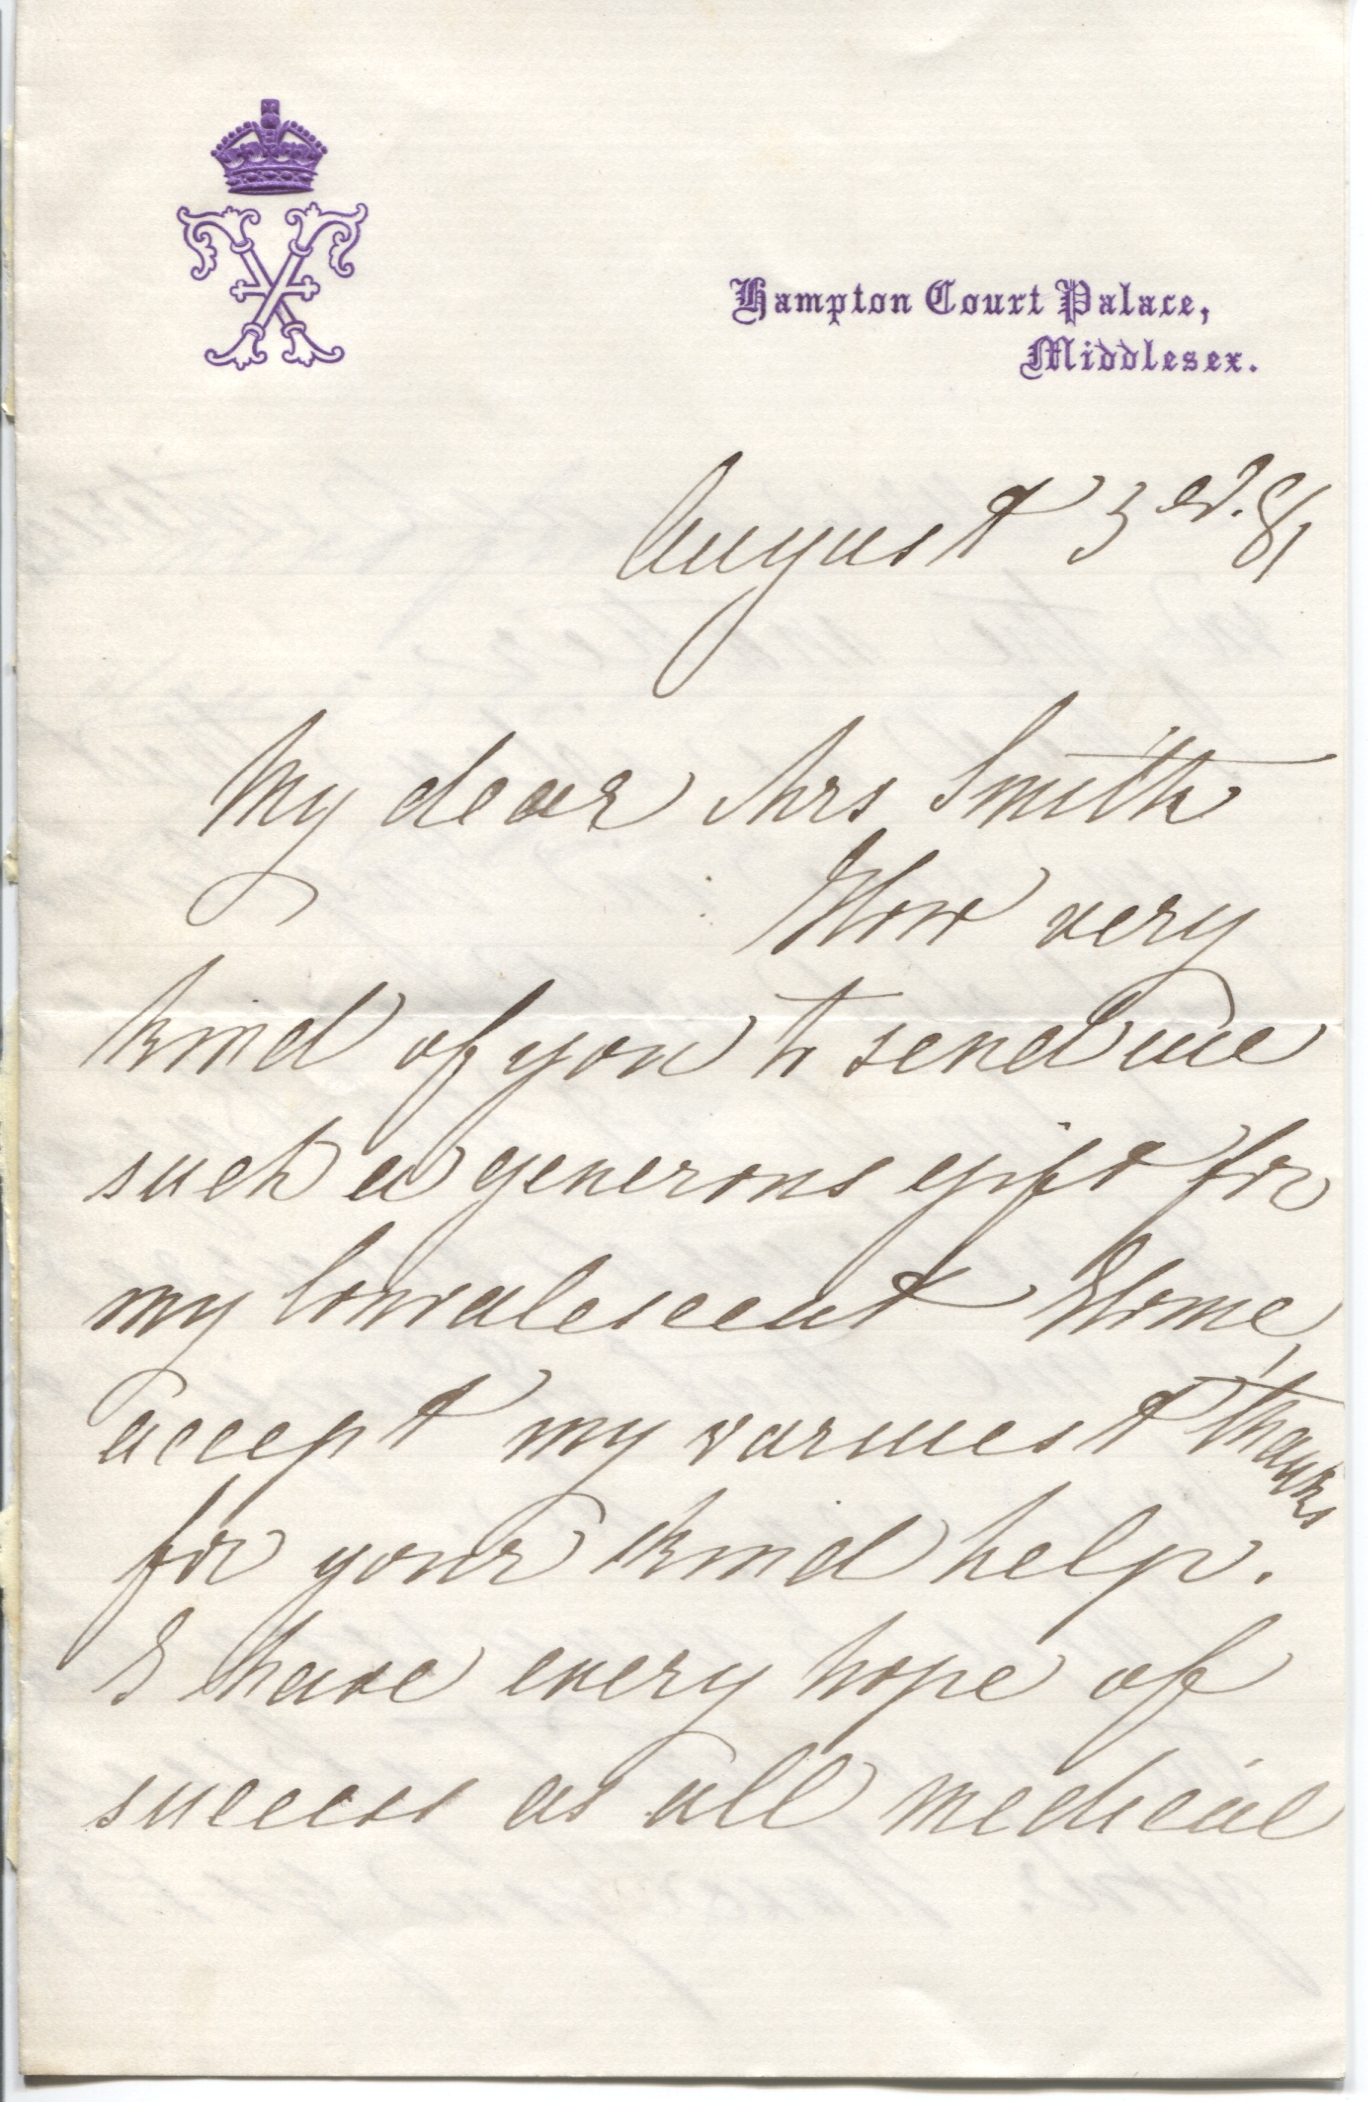 Hampton Court Palace,
Middlesex.
August 3rd. 81
My dear Mrs Smith
How very
kind of you to send me
such a generous gift for
my Convalescent Home,
accept my warmest thanks
for your kind help.
I have every hope of
success as all medical